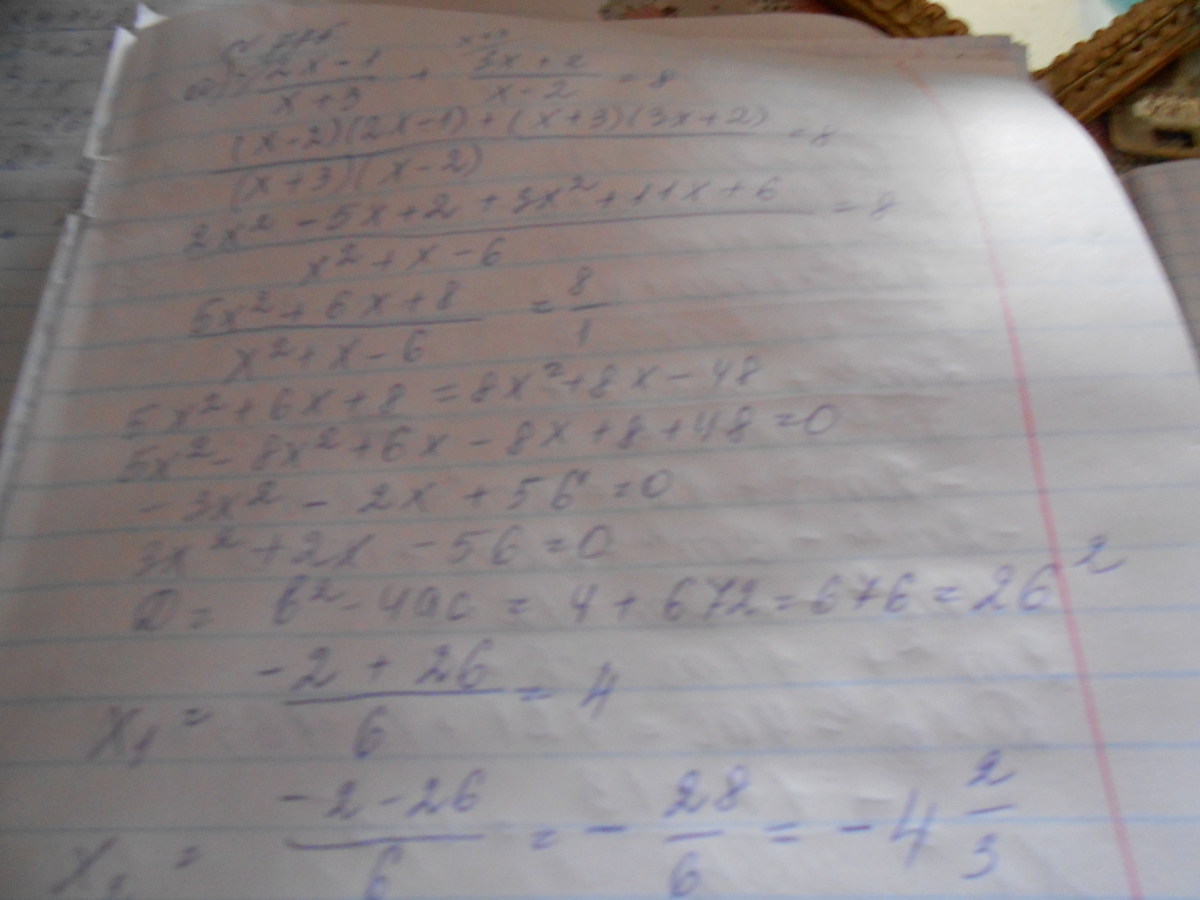 а) (2x-1)/(x+3) + (3x+2)/(x-2) = 8
((x-2)(2x-1)+(x+3)(3x+2))/((x+3)(x-2)) = 8
(2x²-5x+2+3x²+11x+6)/(x²+x-6) = 8
(5x²+6x+8)/(x²+x-6) = 8/1
5x²+6x+8 = 8x²+8x-48
5x²-8x²+6x-8x+8+48=0
-3x²-2x+56=0
3x²+2x-56=0
D= b²-4ac = 4+672=676=26²
x₁ = (-2+26)/6 = 4
x₂ = (-2-26)/6 = -28/6 = -4 2/3